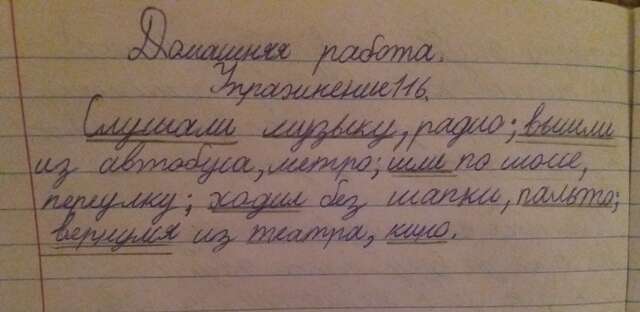 Домашняя работа.
Упражнение 116.
Слушали музыку, радио; вышли
из автобуса, метро; шли по шоссе,
переулку; ходил без шапки, пальто;
вернулся из театра, кино.